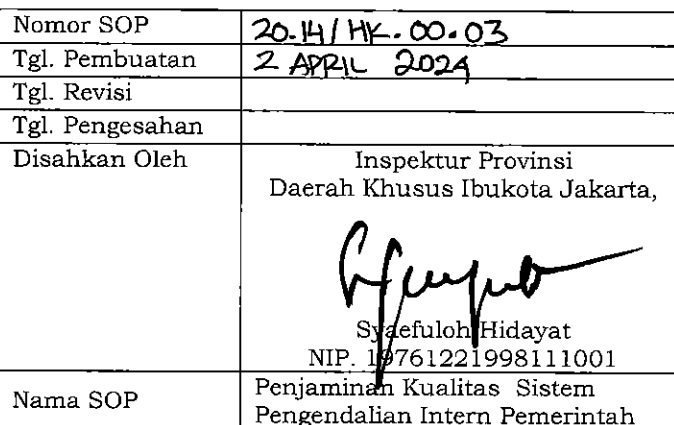 Nomor SOP 20.14/HK.00.03
Tgl. Pembuatan 2 APRIL 2024
Tgl. Revisi
Tgl. Pengesahan
Disahkan Oleh Inspektur Provinsi
Daerah Khusus Ibukota Jakarta,
Syaefuloh Hidayat
NIP. 197612211998111001
Nama SOP Penjaminan Kualitas Sistem
Pengendalian Intern Pemerintah